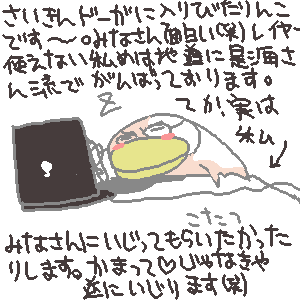 さいきんドーがに入りびだりんこ
です～。みなさん面白い(笑)レイヤー
使えない私めは地道に是海さ
ん流でがんばっております。
てか、実は
私ム
Z
こたつ
みなさんにいじってもらいたかった
りします。かまって♡じゃなきゃ
逆にいじります(笑)